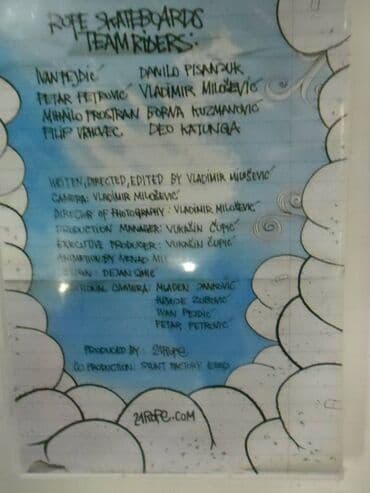 ROPE SKATEBOARDS
TEAM RIDERS:
IVAN PEJDIĆ DANILO PISANJUK
PETAR PETROVIĆ VLADIMIR MILOŠEVIĆ
MIHAILO PROSTRAN BORNA KUZMANOVIĆ
FILIP VRHOVEC DEO KATUNGA
DIRECTED, EDITED BY VLADIMIR MILOŠEVIĆ
CAMERA: VLADIMIR MILOŠEVIĆ
DIRECTOR OF PHOTOGRAPHY: VLADIMIR MILOŠEVIĆ
PRODUCTION MANAGER: VUKAŠIN ČUPIĆ
EXECUTIVE PRODUCER: VUKAŠIN ČUPIĆ
ANIMATION BY NENAD
DEJAN
CAMERA: MLADEN JANKOVIĆ
ZUBOVIĆ
IVAN PEJDIĆ
PETAR PETROVIĆ
PRODUCED BY: 21ROPE
CO PRODUCTION: STUNT FACTORY
21ROPE.COM